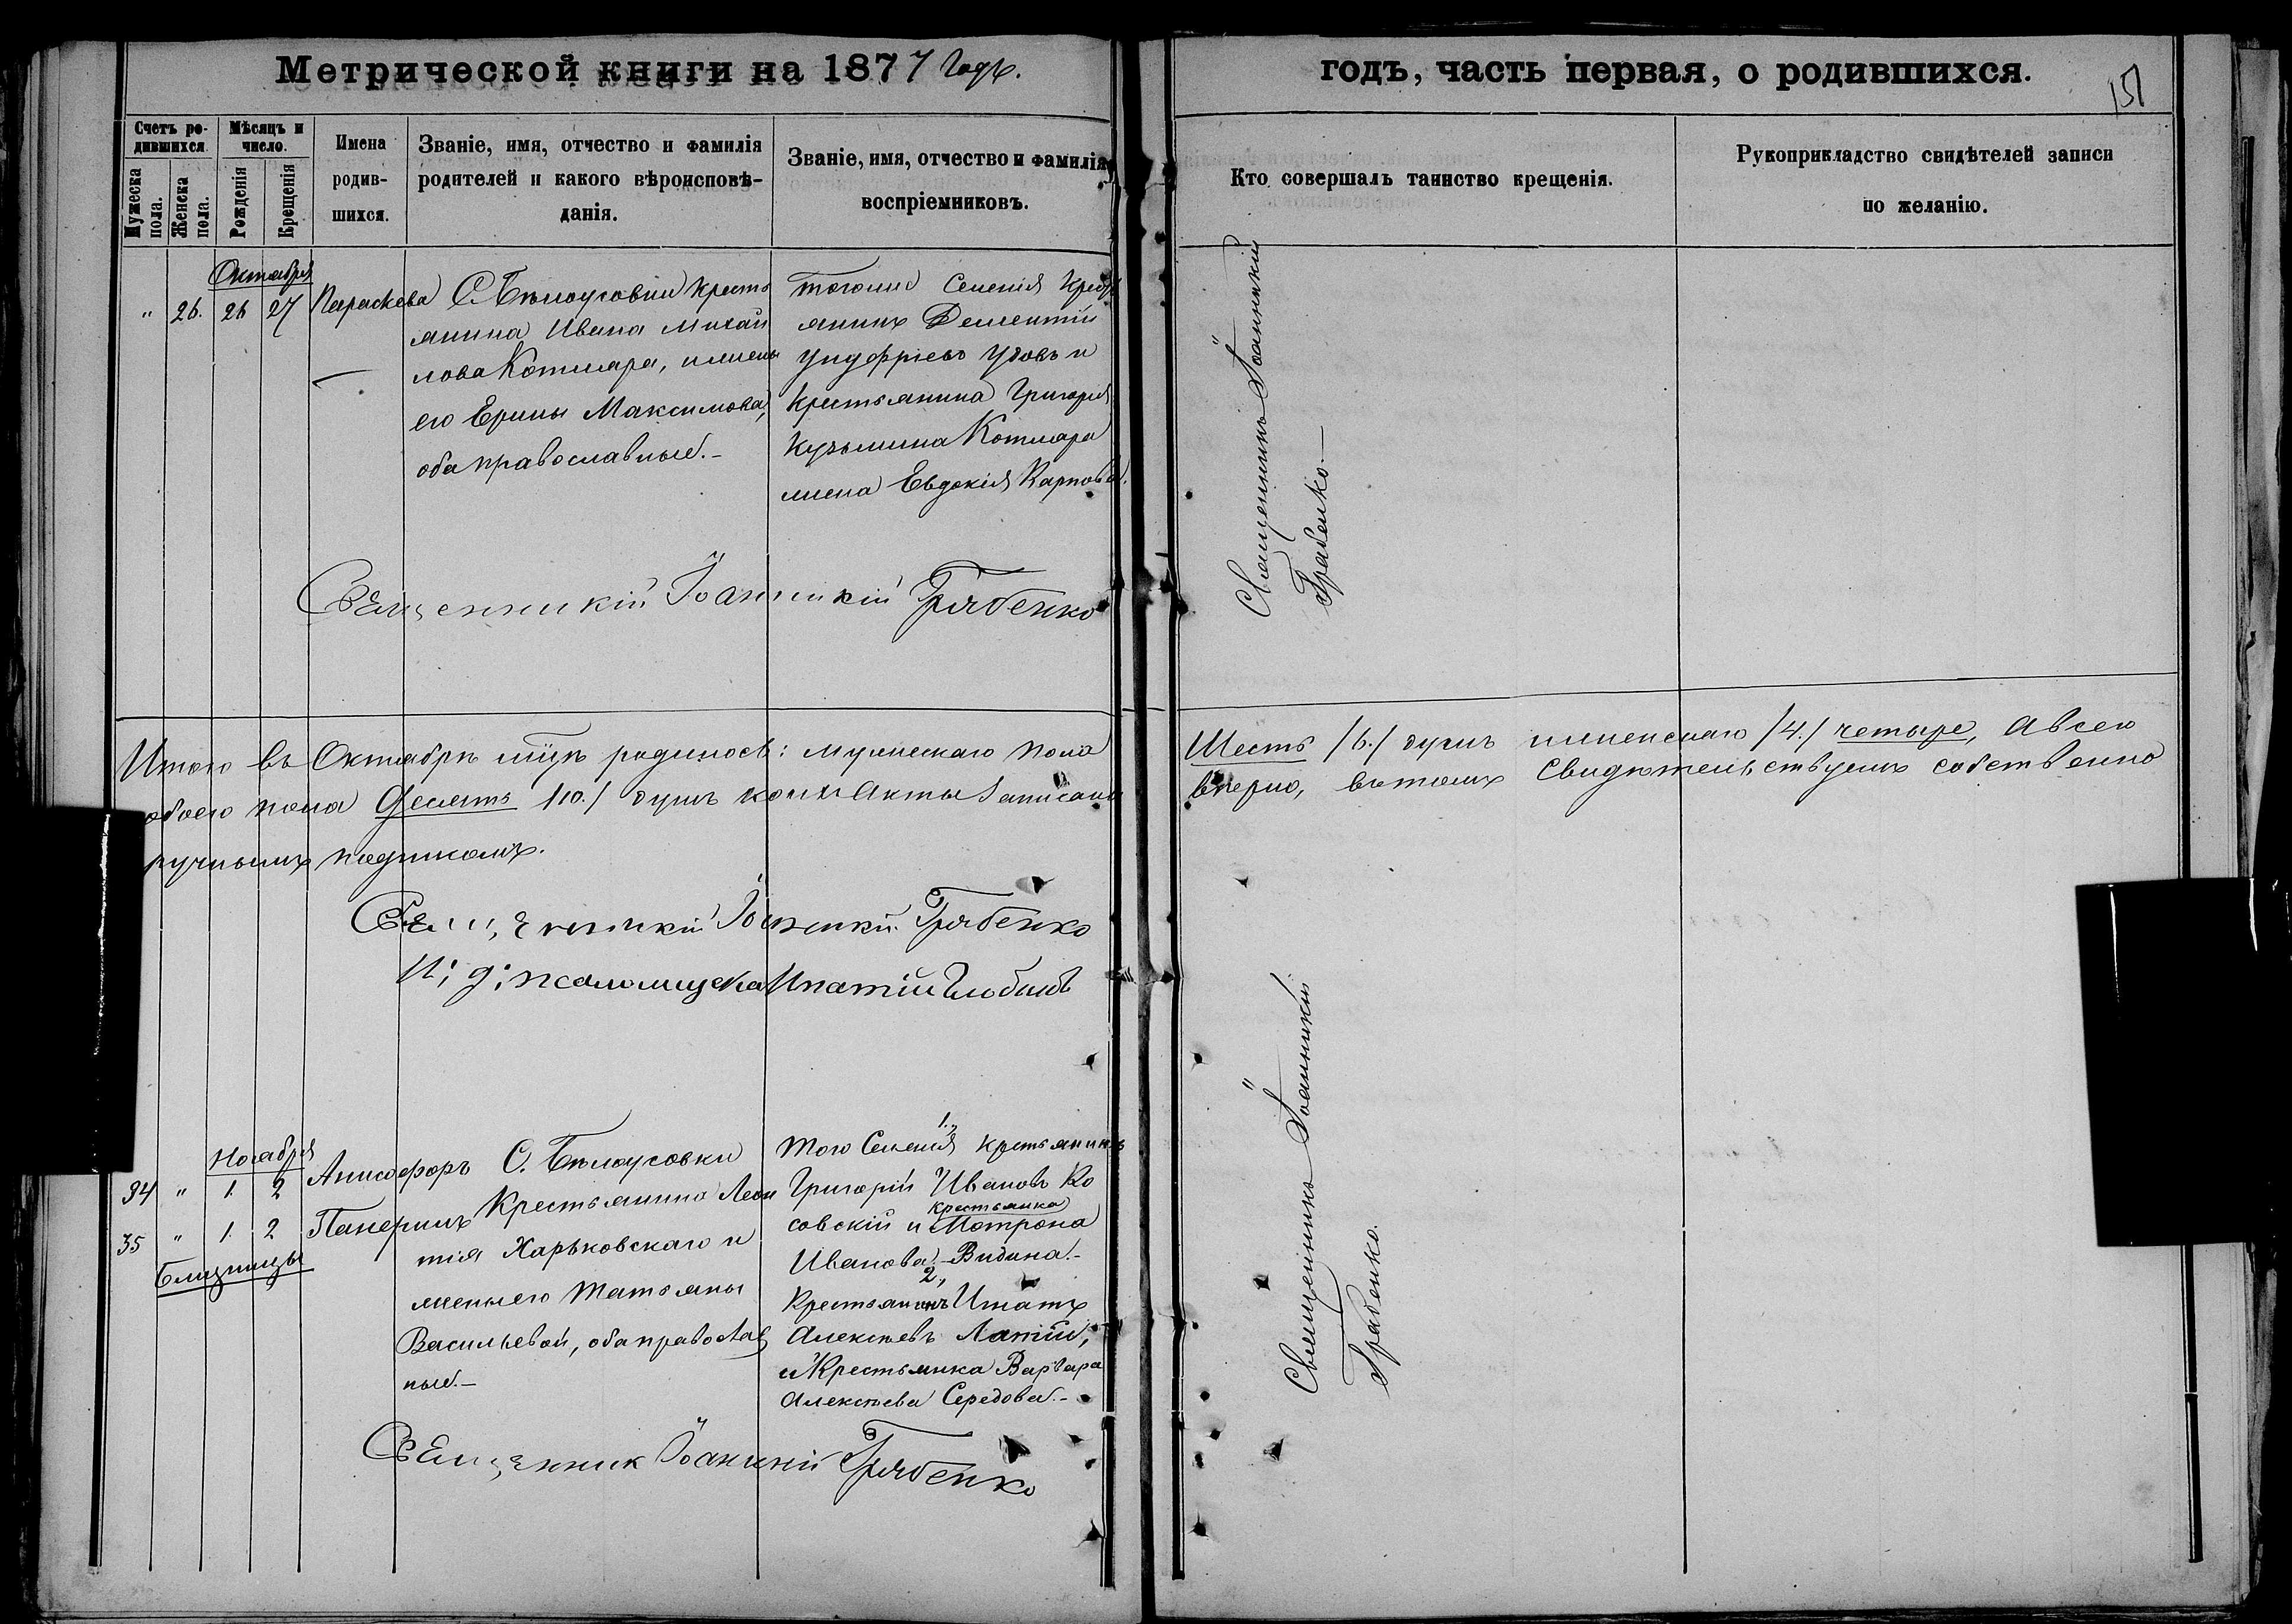 Метрической книги на 1877 годъ.
годъ, часть первая, о родившихся.
151
Счетъ ро-
дившихся.
Мужеска
пола.
Женска
пола.
Мѣсяцъ и
число.
Рожденія
Крещенія
Имена
родив-
шихся.
Званіе, имя, отчество и фамилія
родителей и какого вѣроисповѣ-
данія.
Званіе, имя, отчество и фамилія
воспріемниковъ.
Кто совершалъ таинство крещенія.
Рукоприкладство свидѣтелей записи
по желанію.
Октября
" 26. 26 27 Параскева
С. Бѣлоусовки кресть
янина Ивана Михаи
лова Котляра, и жены
его Ерины Максимова,
оба православные.-
тогоже Селенія Кресть
янинъ Дементій
и
Крестьянина Григорія
Кузьмина Котляра
жена Евдокія Карпова.
Священникъ Іоанникій
Грабенко.-
Священникій Іоанникій Грабенко
Итого въ Октябрѣ мцѣ родилось: мужескаго пола
Шесть /6./ душъ женскаго /4./ четыре, а всего
обоего пола Десять /10./ душъ коихъ Акты записаны
вѣрно, въ томъ Свидѣтельствуемъ собственно
ручнымъ подписомъ.
Священникій Іоанникій Грабенко
И: д: псаломщика Ипатій
Ноября
34 " 1. 2 Анисифоръ
35 " 1. 2
Близнецы
С. Бѣлоусовки
Крестьянина Леон
тія Харьковскаго и
жены его Татьяны
Васильевой, оба православ
ные.-
1.,
Того Селенія крестьянинъ
Григорій Ивановъ Ко
совскій и крестьянка Мотрона
Иванова
2,
Крестьянинъ
Алексѣевъ
и Крестьянка Варвара
Алексѣева Середова.-
Священникъ Іоанникій
Грабенко.
Священник Іоанникій Грабенко